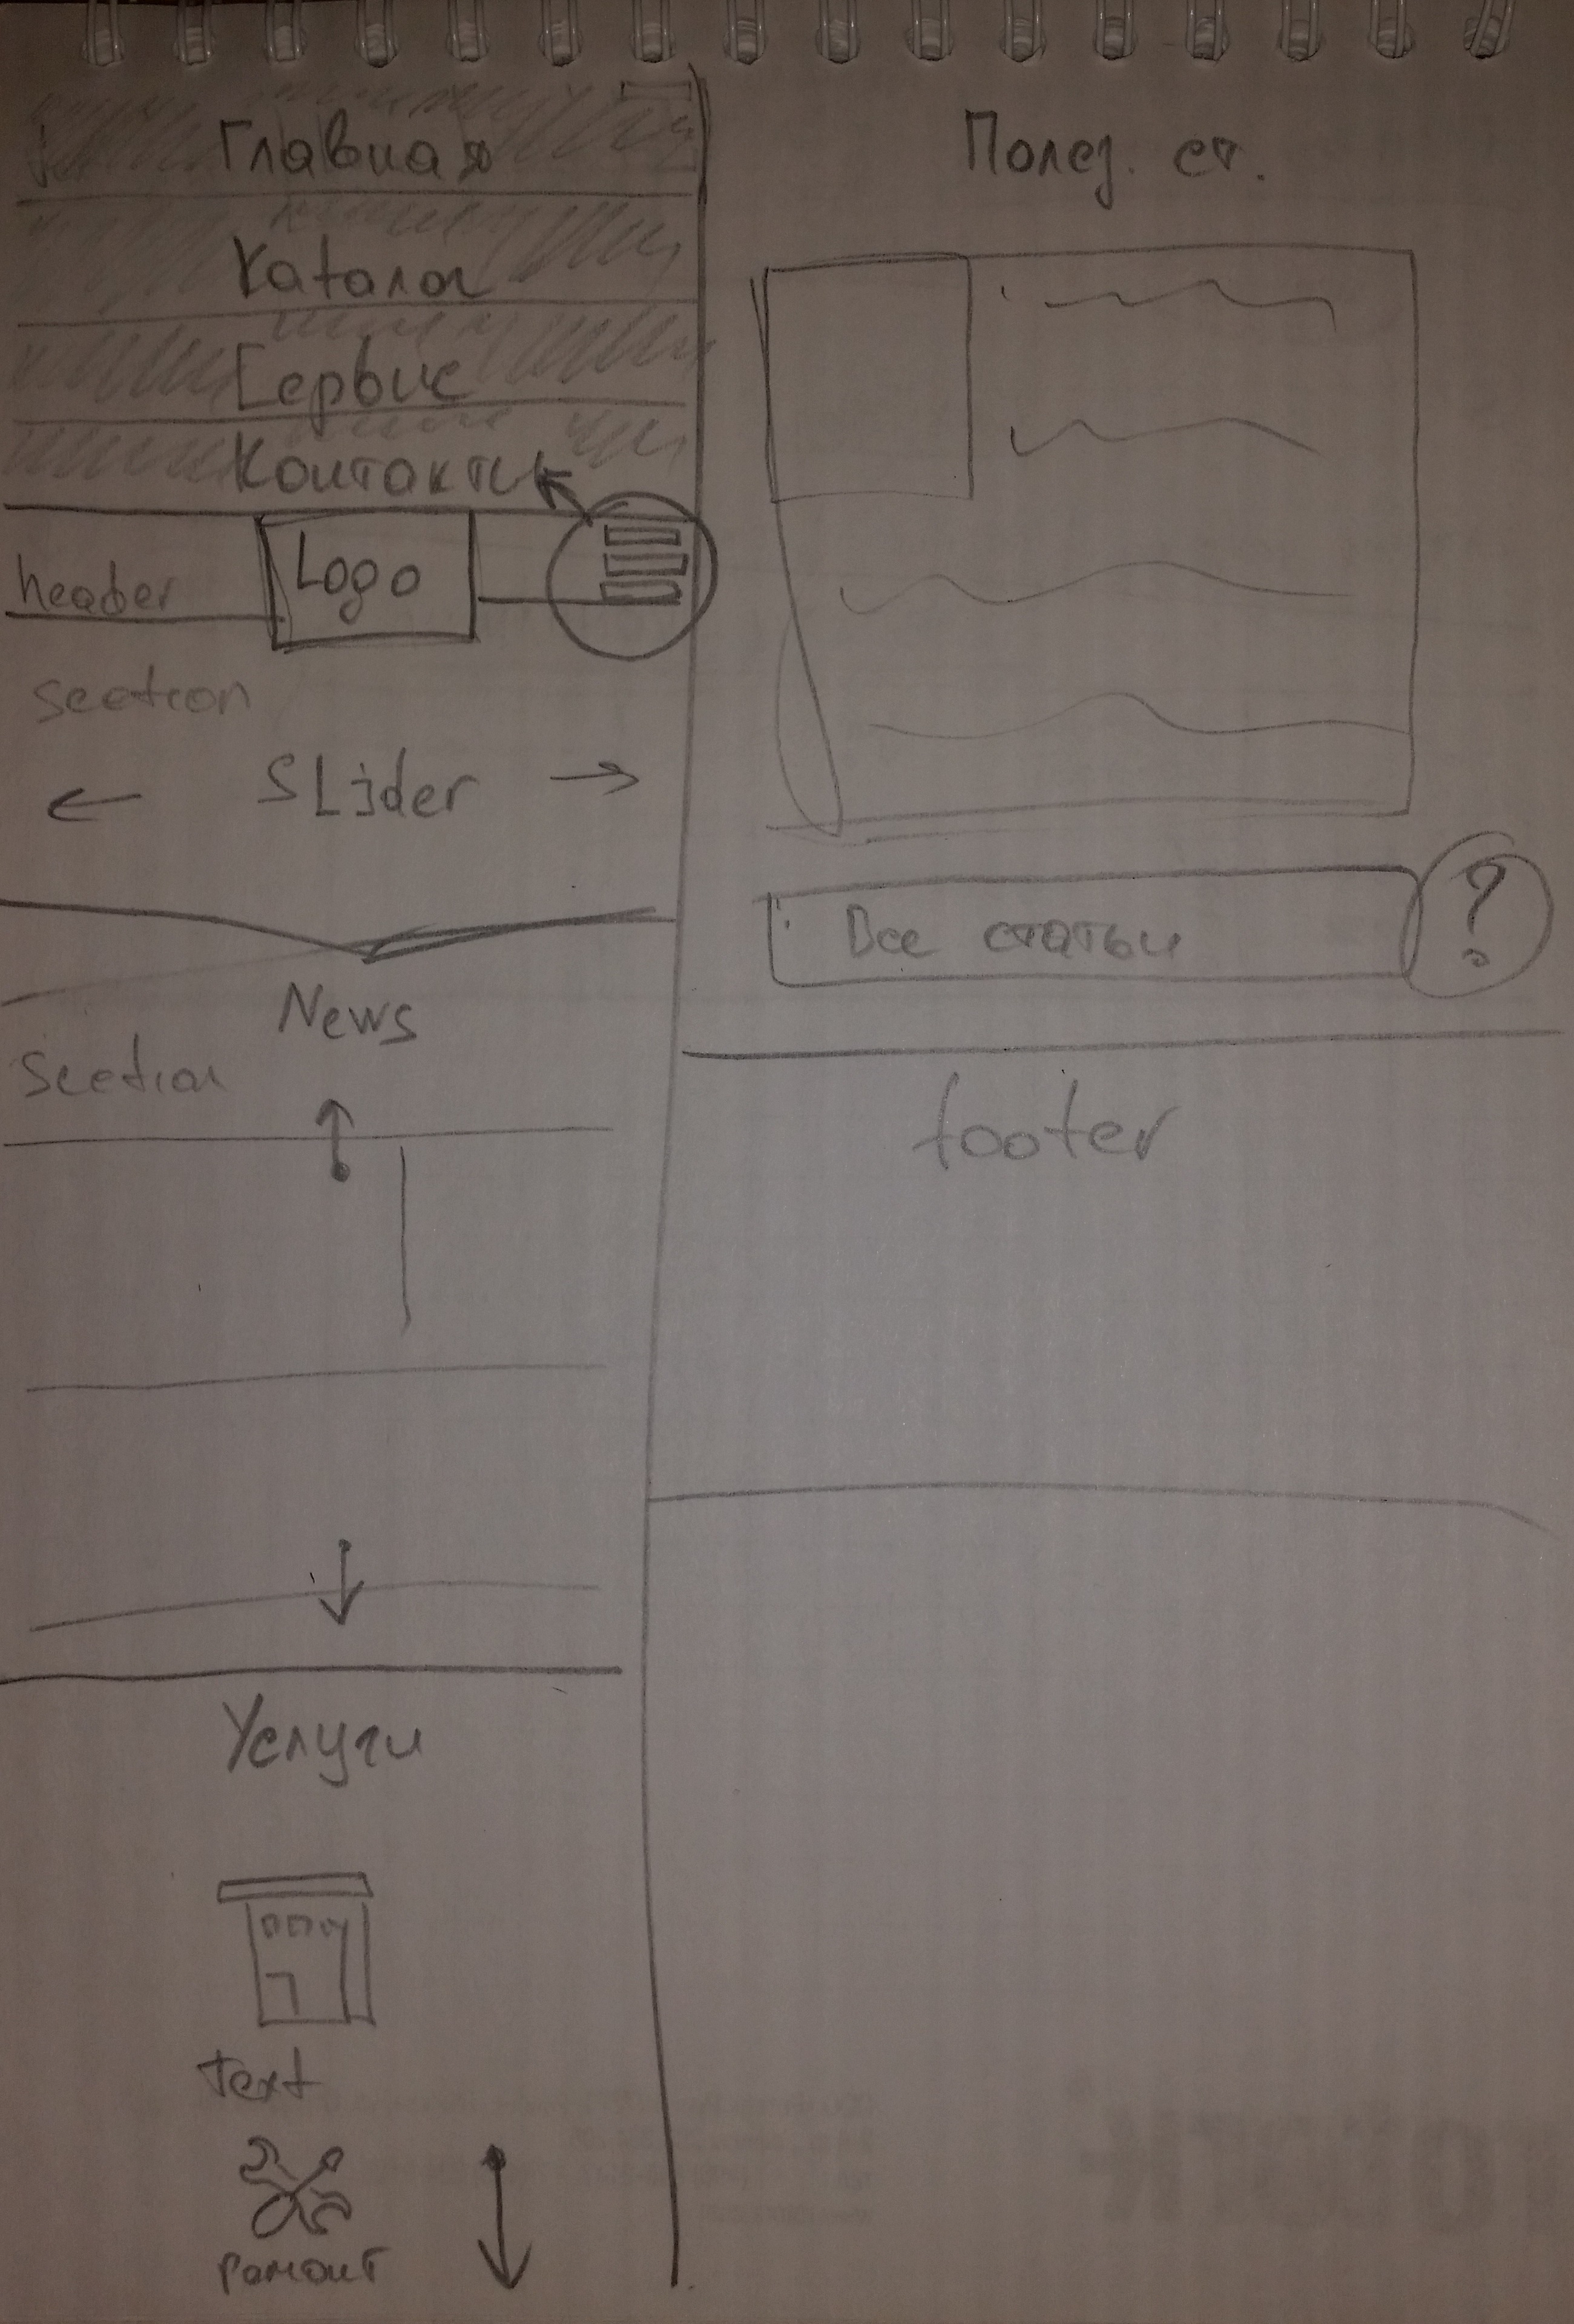 Главная
Каталог
Сервис
Контакты
header
Logo
section
SLider
News
Section
Услуги
Text
ремонт
Полез. ст.
Все статьи
?
footer